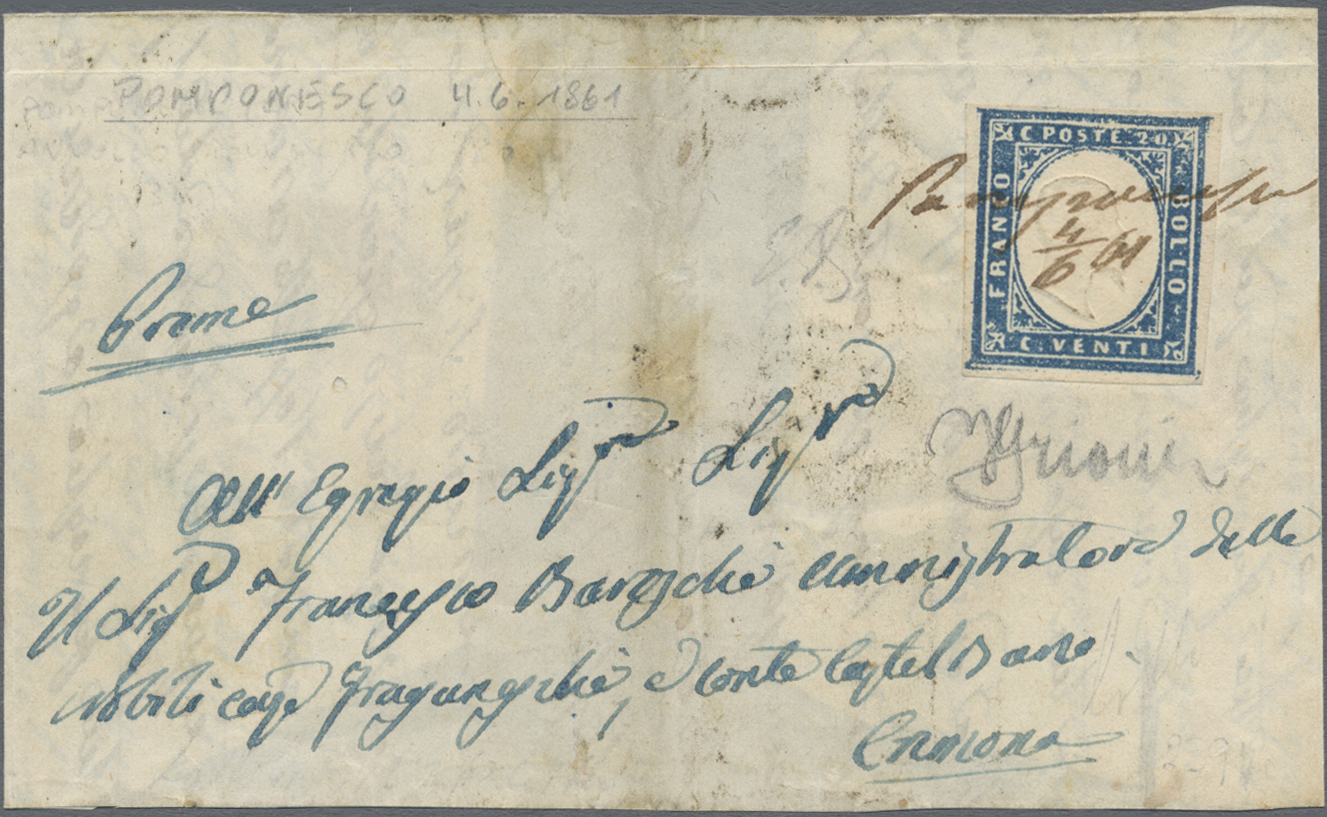 POMPONESCO 4.6.1861
C POSTE 20
FRANCO
BOLLO
C. VENTI
Pomponesco
4/6 61
Preme
All' Egregio Sigr Sigr
Il Sigr Francesco Baroschè Amministratore delle
Nobili case e Conte Castel Bare
Cremona